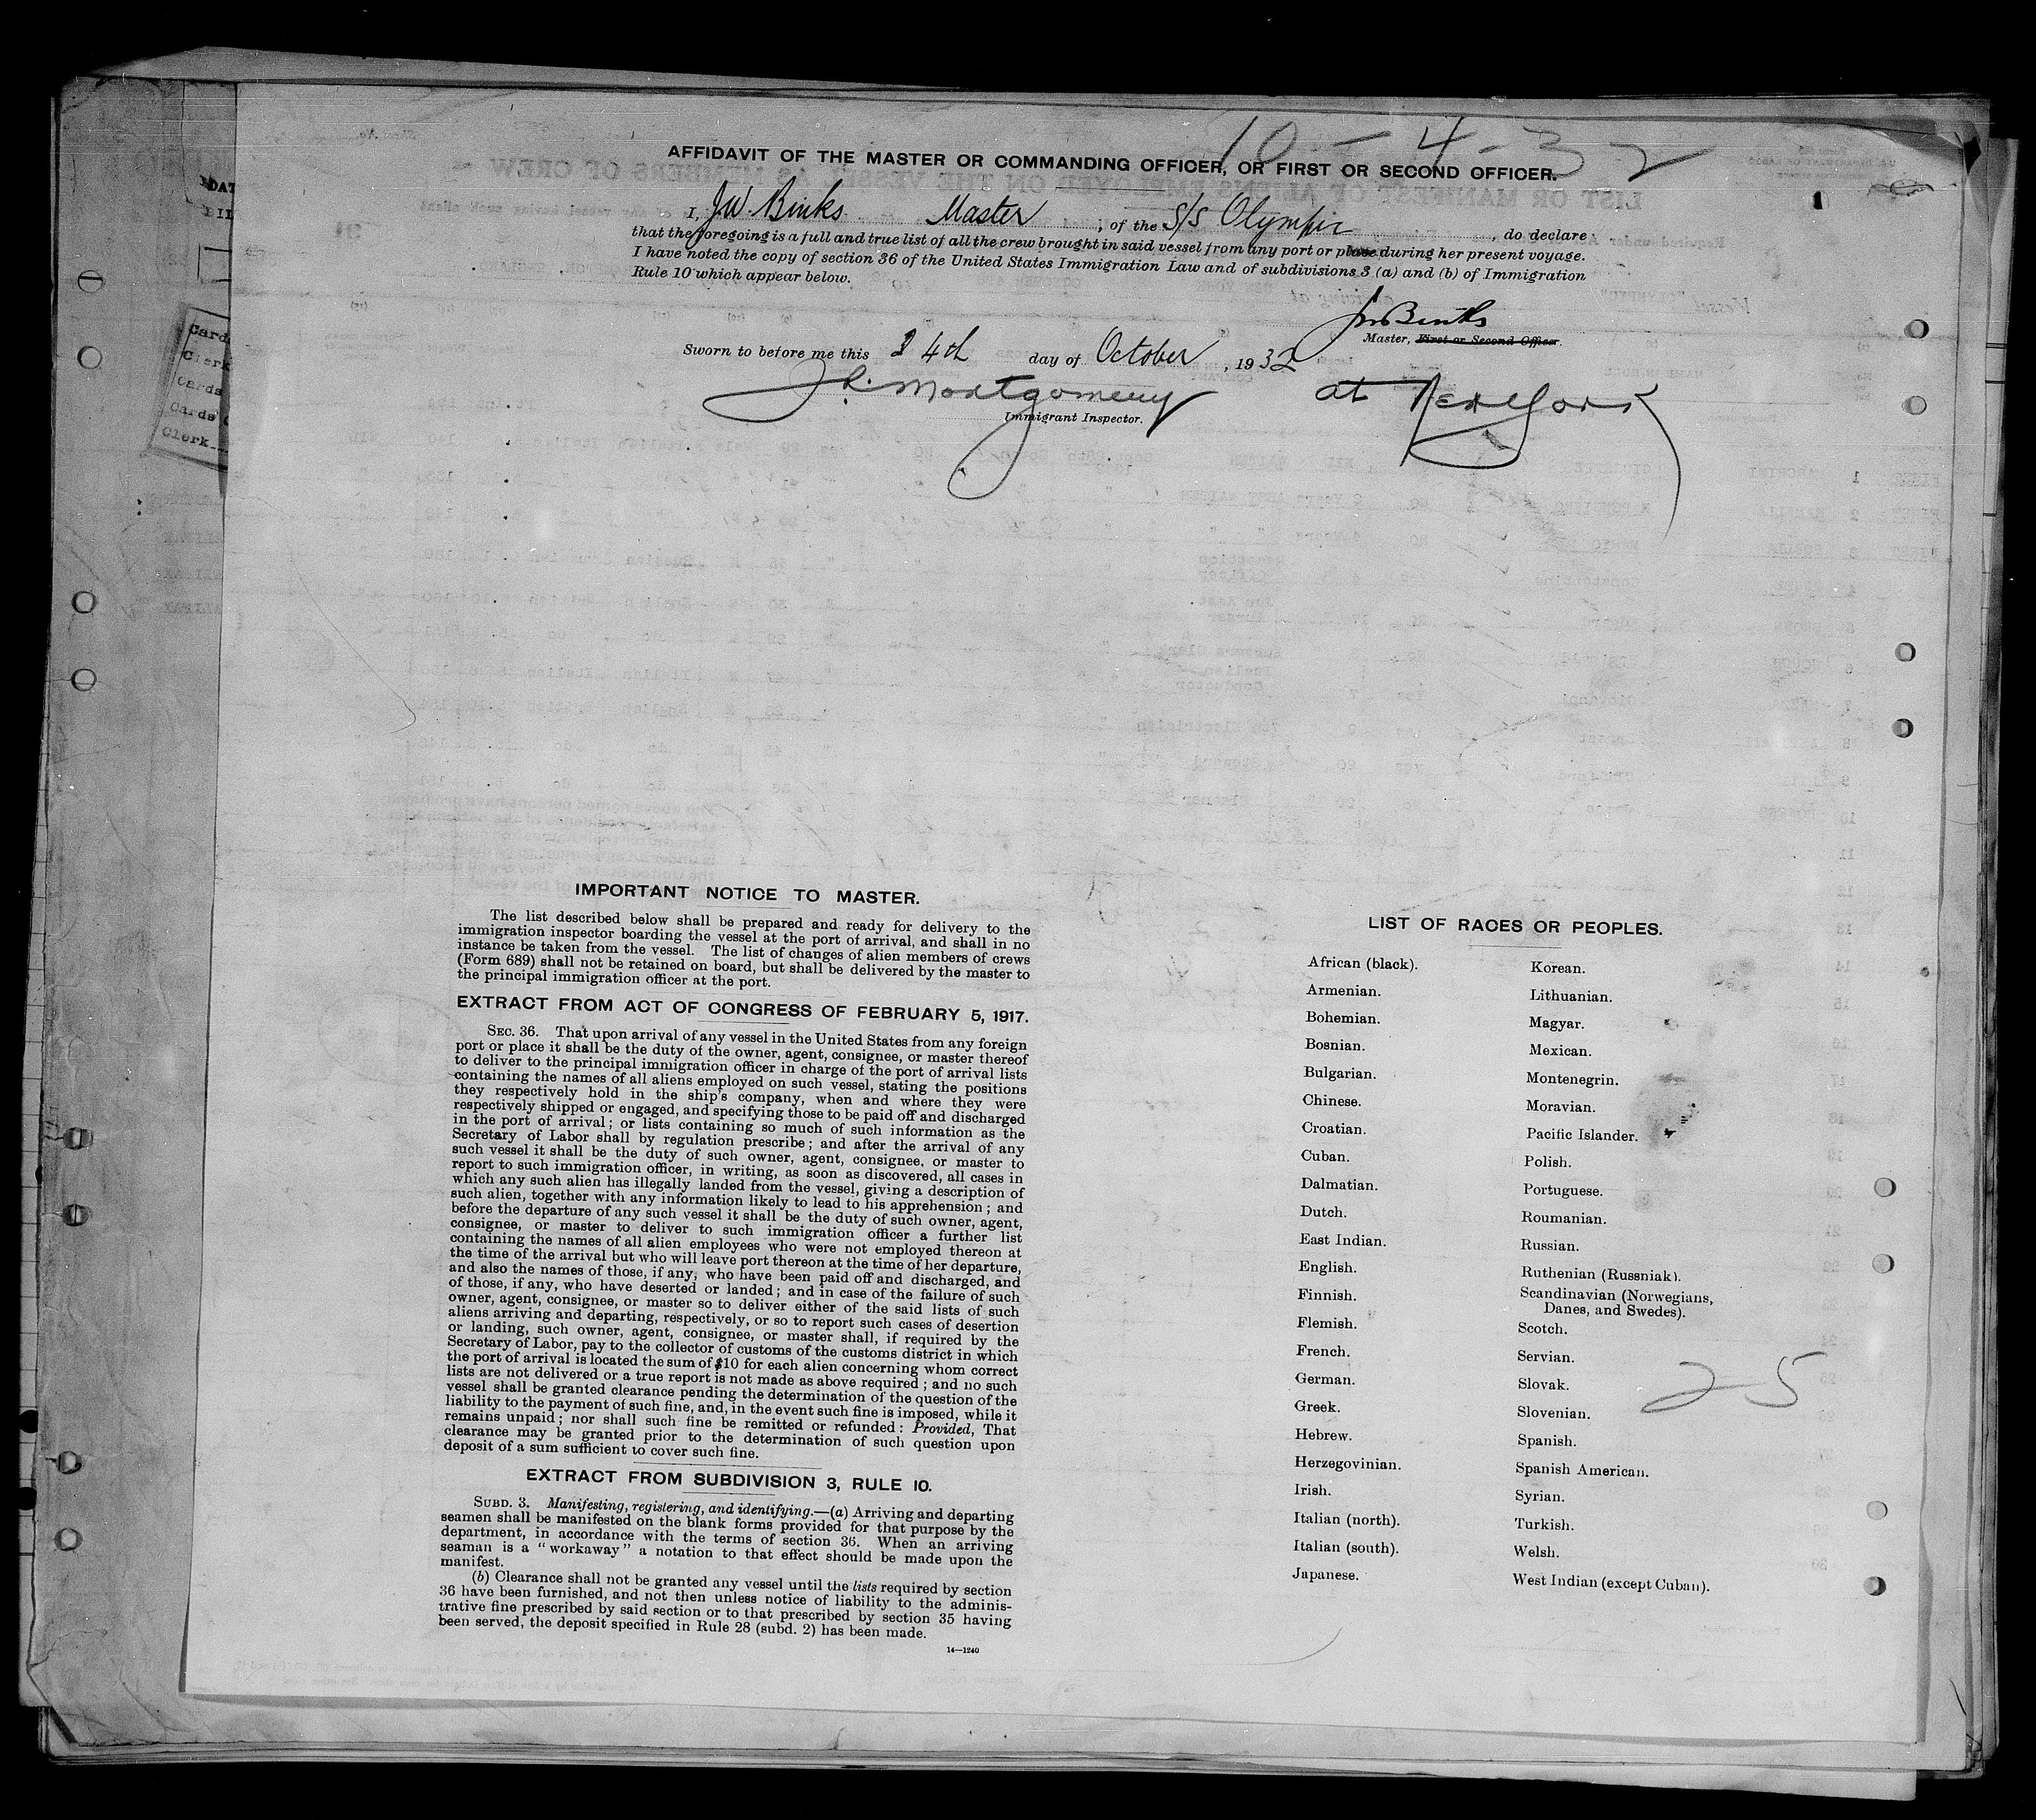 10-4-32
AFFIDAVIT OF THE MASTER OR COMMANDING OFFICER, OR FIRST OR SECOND OFFICER.
1
I, J.W. Binks Master, of the S/S Olympic, do declare
that the foregoing is a full and true list of all the crew brought in said vessel from any port or place during her present voyage.
I have noted the copy of section 36 of the United States Immigration Law and of subdivisions 3 (a) and (b) of Immigration
Rule 10 which appear below.
JW Binks
Master, First or Second Officer.
Sworn to before me this 24th day of October, 1932
Montgomery at New York
Immigrant Inspector.
Card
Clerk
Cards
Cards
Clerk
IMPORTANT NOTICE TO MASTER.
The list described below shall be prepared and ready for delivery to the
immigration inspector boarding the vessel at the port of arrival, and shall in no
instance be taken from the vessel. The list of changes of alien members of crews
(Form 689) shall not be retained on board, but shall be delivered by the master to
the principal immigration officer at the port.
EXTRACT FROM ACT OF CONGRESS OF FEBRUARY 5, 1917.
SEC. 36. That upon arrival of any vessel in the United States from any foreign
port or place it shall be the duty of the owner, agent, consignee, or master thereof
to deliver to the principal immigration officer in charge of the port of arrival lists
containing the names of all aliens employed on such vessel, stating the positions
they respectively hold in the ship's company, when and where they were
respectively shipped or engaged, and specifying those to be paid off and discharged
in the port of arrival; or lists containing so much of such information as the
Secretary of Labor shall by regulation prescribe; and after the arrival of any
such vessel it shall be the duty of such owner, agent, consignee, or master to
report to such immigration officer, in writing, as soon as discovered, all cases in
which any such alien has illegally landed from the vessel, giving a description of
such alien, together with any information likely to lead to his apprehension; and
before the departure of any such vessel it shall be the duty of such owner, agent,
consignee, or master to deliver to such immigration officer a further list
containing the names of all alien employees who were not employed thereon at
the time of the arrival but who will leave port thereon at the time of her departure,
and also the names of those, if any, who have been paid off and discharged, and
of those, if any, who have deserted or landed; and in case of the failure of such
owner, agent, consignee, or master so to deliver either of the said lists of such
aliens arriving and departing, respectively, or so to report such cases of desertion
or landing, such owner, agent, consignee, or master shall, if required by the
Secretary of Labor, pay to the collector of customs of the customs district in which
the port of arrival is located the sum of $10 for each alien concerning whom correct
lists are not delivered or a true report is not made as above required; and no such
vessel shall be granted clearance pending the determination of the question of the
liability to the payment of such fine, and, in the event such fine is imposed, while it
remains unpaid; nor shall such fine be remitted or refunded: Provided, That
clearance may be granted prior to the determination of such question upon
deposit of a sum sufficient to cover such fine.
EXTRACT FROM SUBDIVISION 3, RULE 10.
SUBD. 3. Manifesting, registering, and identifying.—(a) Arriving and departing
seamen shall be manifested on the blank forms provided for that purpose by the
department, in accordance with the terms of section 36. When an arriving
seaman is a "workaway" a notation to that effect should be made upon the
manifest.
(b) Clearance shall not be granted any vessel until the lists required by section
36 have been furnished, and not then unless notice of liability to the adminis-
trative fine prescribed by said section or to that prescribed by section 35 having
been served, the deposit specified in Rule 28 (subd. 2) has been made.
14—1240
LIST OF RACES OR PEOPLES.
African (black).
Armenian.
Bohemian.
Bosnian.
Bulgarian.
Chinese.
Croatian.
Cuban.
Dalmatian.
Dutch.
East Indian.
English.
Finnish.
Flemish.
French.
German.
Greek.
Hebrew.
Herzegovinian.
Irish.
Italian (north).
Italian (south).
Japanese.
Korean.
Lithuanian.
Magyar.
Mexican.
Montenegrin.
Moravian.
Pacific Islander.
Polish.
Portuguese.
Roumanian.
Russian.
Ruthenian (Russniak).
Scandinavian (Norwegians,
Danes, and Swedes).
Scotch.
Servian.
Slovak.
Slovenian.
Spanish.
Spanish American.
Syrian.
Turkish.
Welsh.
West Indian (except Cuban).
25